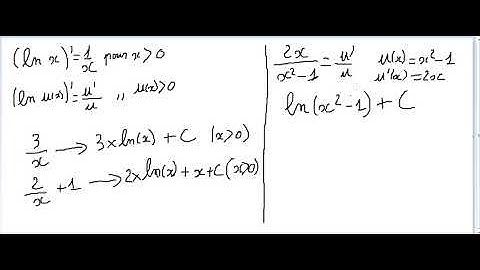 (ln x)' = 1/x pour x > 0
(ln u(x))' = u'/u ,, u(x) > 0
3/x → 3 × ln(x) + C (x > 0)
2/x + 1 → 2 × ln(x) + x + C (x > 0)
2x/(x² - 1) = u'/u u(x) = x² - 1
u'(x) = 2x
ln(x² - 1) + C